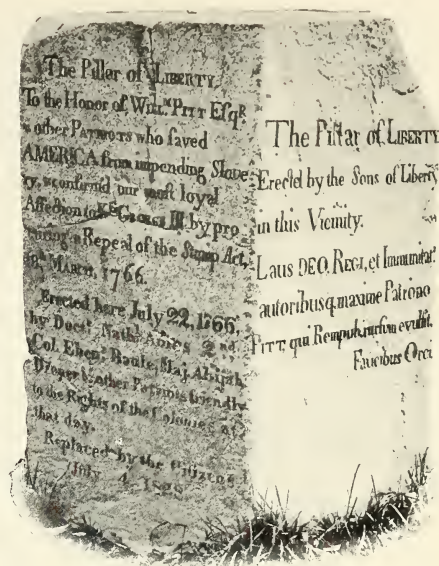 The Pillar of LIBERTY
To the Honor of Will.m PITT Esq.R
& other PATRIOTS who saved
AMERICA from impending Slave
ry, & confirm'd our most loyal
Affection to K.G GEORGE III by pro
curing a Repeal of the Stamp Act,
18th MARCH, 1766.
Erected here July 22, 1766,
by Doct. Nath.l Ames 2nd,
Col. Eben.r Battle, Maj. Abijah
Draper & other Patriots friendly
to the Rights of the Colonies at
that day.
Replaced by the Citizens
July 4
The Pillar of LIBERTY
Erected by the Sons of Liberty
in this Vicinity.
Laus DEO, REGI, et Immunitat.m
autoribusq. maxime Patrono
PITT, qui Rempub. rursum evulsit,
Faucibus Orci